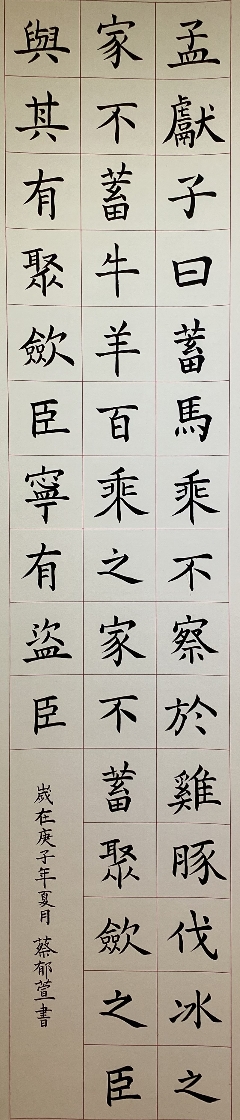 孟獻子曰蓄馬乘不察於雞豚伐冰之
家不蓄牛羊百乘之家不蓄聚斂之臣
與其有聚斂臣寧有盜臣
歲在庚子年夏月 蔡郁萱書